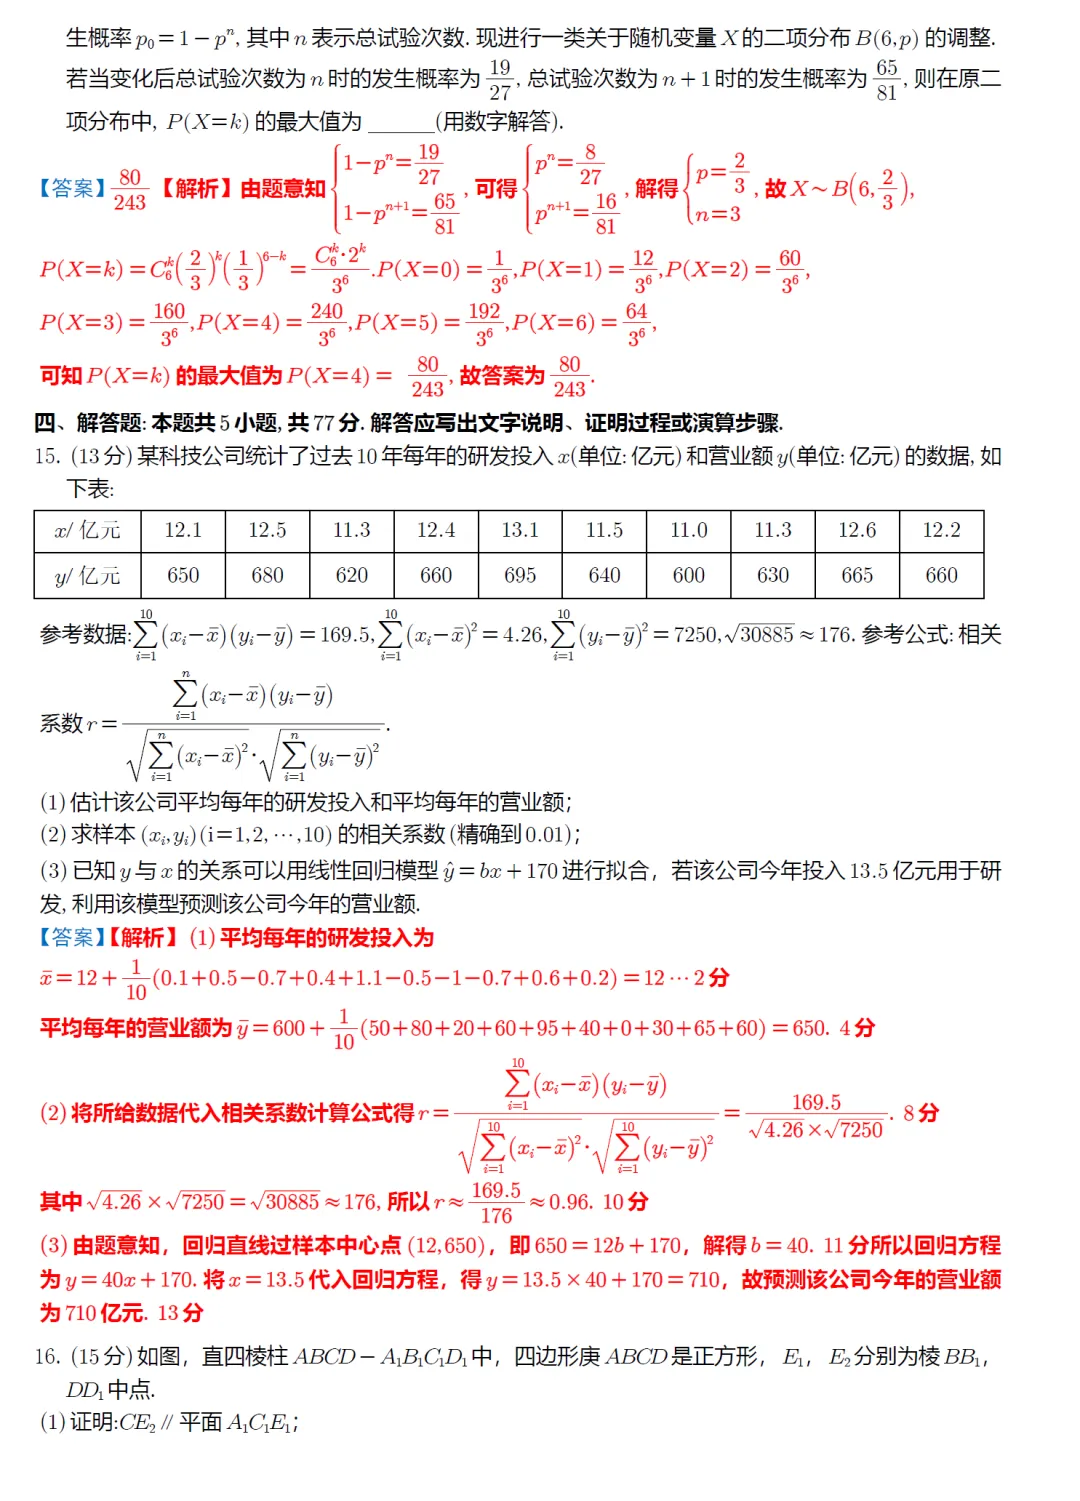 生概率 p₀ = 1 − pⁿ, 其中 n 表示总试验次数. 现进行一类关于随机变量 X 的二项分布 B(6,p) 的调整.
若当变化后总试验次数为 n 时的发生概率为 19/27, 总试验次数为 n + 1 时的发生概率为 65/81, 则在原二
项分布中, P(X=k) 的最大值为 ______(用数字解答).
【答案】80/243 【解析】由题意知 {1−pⁿ=19/27, 1−pⁿ⁺¹=65/81, 可得 {pⁿ=8/27, pⁿ⁺¹=16/81, 解得 {p=2/3, n=3, 故 X∼B(6,2/3),
P(X=k)=C₆ᵏ(2/3)ᵏ(1/3)⁶⁻ᵏ=C₆ᵏ·2ᵏ/3⁶.P(X=0)=1/3⁶,P(X=1)=12/3⁶,P(X=2)=60/3⁶,
P(X=3)=160/3⁶,P(X=4)=240/3⁶,P(X=5)=192/3⁶,P(X=6)=64/3⁶,
可知 P(X=k) 的最大值为 P(X=4)= 80/243, 故答案为 80/243.
四、解答题: 本题共 5 小题, 共 77 分. 解答应写出文字说明、证明过程或演算步骤.
15. (13 分) 某科技公司统计了过去 10 年每年的研发投入 x(单位: 亿元) 和营业额 y(单位: 亿元) 的数据, 如
下表:
x/ 亿元 12.1 12.5 11.3 12.4 13.1 11.5 11.0 11.3 12.6 12.2
y/ 亿元 650 680 620 660 695 640 600 630 665 660
参考数据:∑_{i=1}^{10}(xᵢ−x̄)(yᵢ−ȳ)=169.5,∑_{i=1}^{10}(xᵢ−x̄)²=4.26,∑_{i=1}^{10}(yᵢ−ȳ)²=7250,√30885≈176. 参考公式: 相关
系数 r=∑_{i=1}^{n}(xᵢ−x̄)(yᵢ−ȳ)/(√(∑_{i=1}^{n}(xᵢ−x̄)²)·√(∑_{i=1}^{n}(yᵢ−ȳ)²)).
(1) 估计该公司平均每年的研发投入和平均每年的营业额；
(2) 求样本 (xᵢ,yᵢ)(i=1,2,⋯,10) 的相关系数 (精确到 0.01)；
(3) 已知 y 与 x 的关系可以用线性回归模型 ŷ=bx+170 进行拟合，若该公司今年投入 13.5 亿元用于研
发, 利用该模型预测该公司今年的营业额.
【答案】【解析】(1) 平均每年的研发投入为
x̄=12+1/10(0.1+0.5−0.7+0.4+1.1−0.5−1−0.7+0.6+0.2)=12⋯2 分
平均每年的营业额为 ȳ=600+1/10(50+80+20+60+95+40+0+30+65+60)=650. 4 分
(2) 将所给数据代入相关系数计算公式得 r=∑_{i=1}^{10}(xᵢ−x̄)(yᵢ−ȳ)/(√(∑_{i=1}^{10}(xᵢ−x̄)²)·√(∑_{i=1}^{10}(yᵢ−ȳ)²))=169.5/(√4.26×√7250). 8 分
其中 √4.26×√7250=√30885≈176, 所以 r≈169.5/176≈0.96. 10 分
(3) 由题意知，回归直线过样本中心点 (12,650)，即 650=12b+170，解得 b=40. 11 分所以回归方程
为 y=40x+170. 将 x=13.5 代入回归方程，得 y=13.5×40+170=710，故预测该公司今年的营业额
为 710 亿元. 13 分
16. (15 分) 如图，直四棱柱 ABCD−A₁B₁C₁D₁ 中，四边形庚 ABCD 是正方形，E₁，E₂ 分别为棱 BB₁，
DD₁ 中点.
(1) 证明:CE₂ // 平面 A₁C₁E₁；